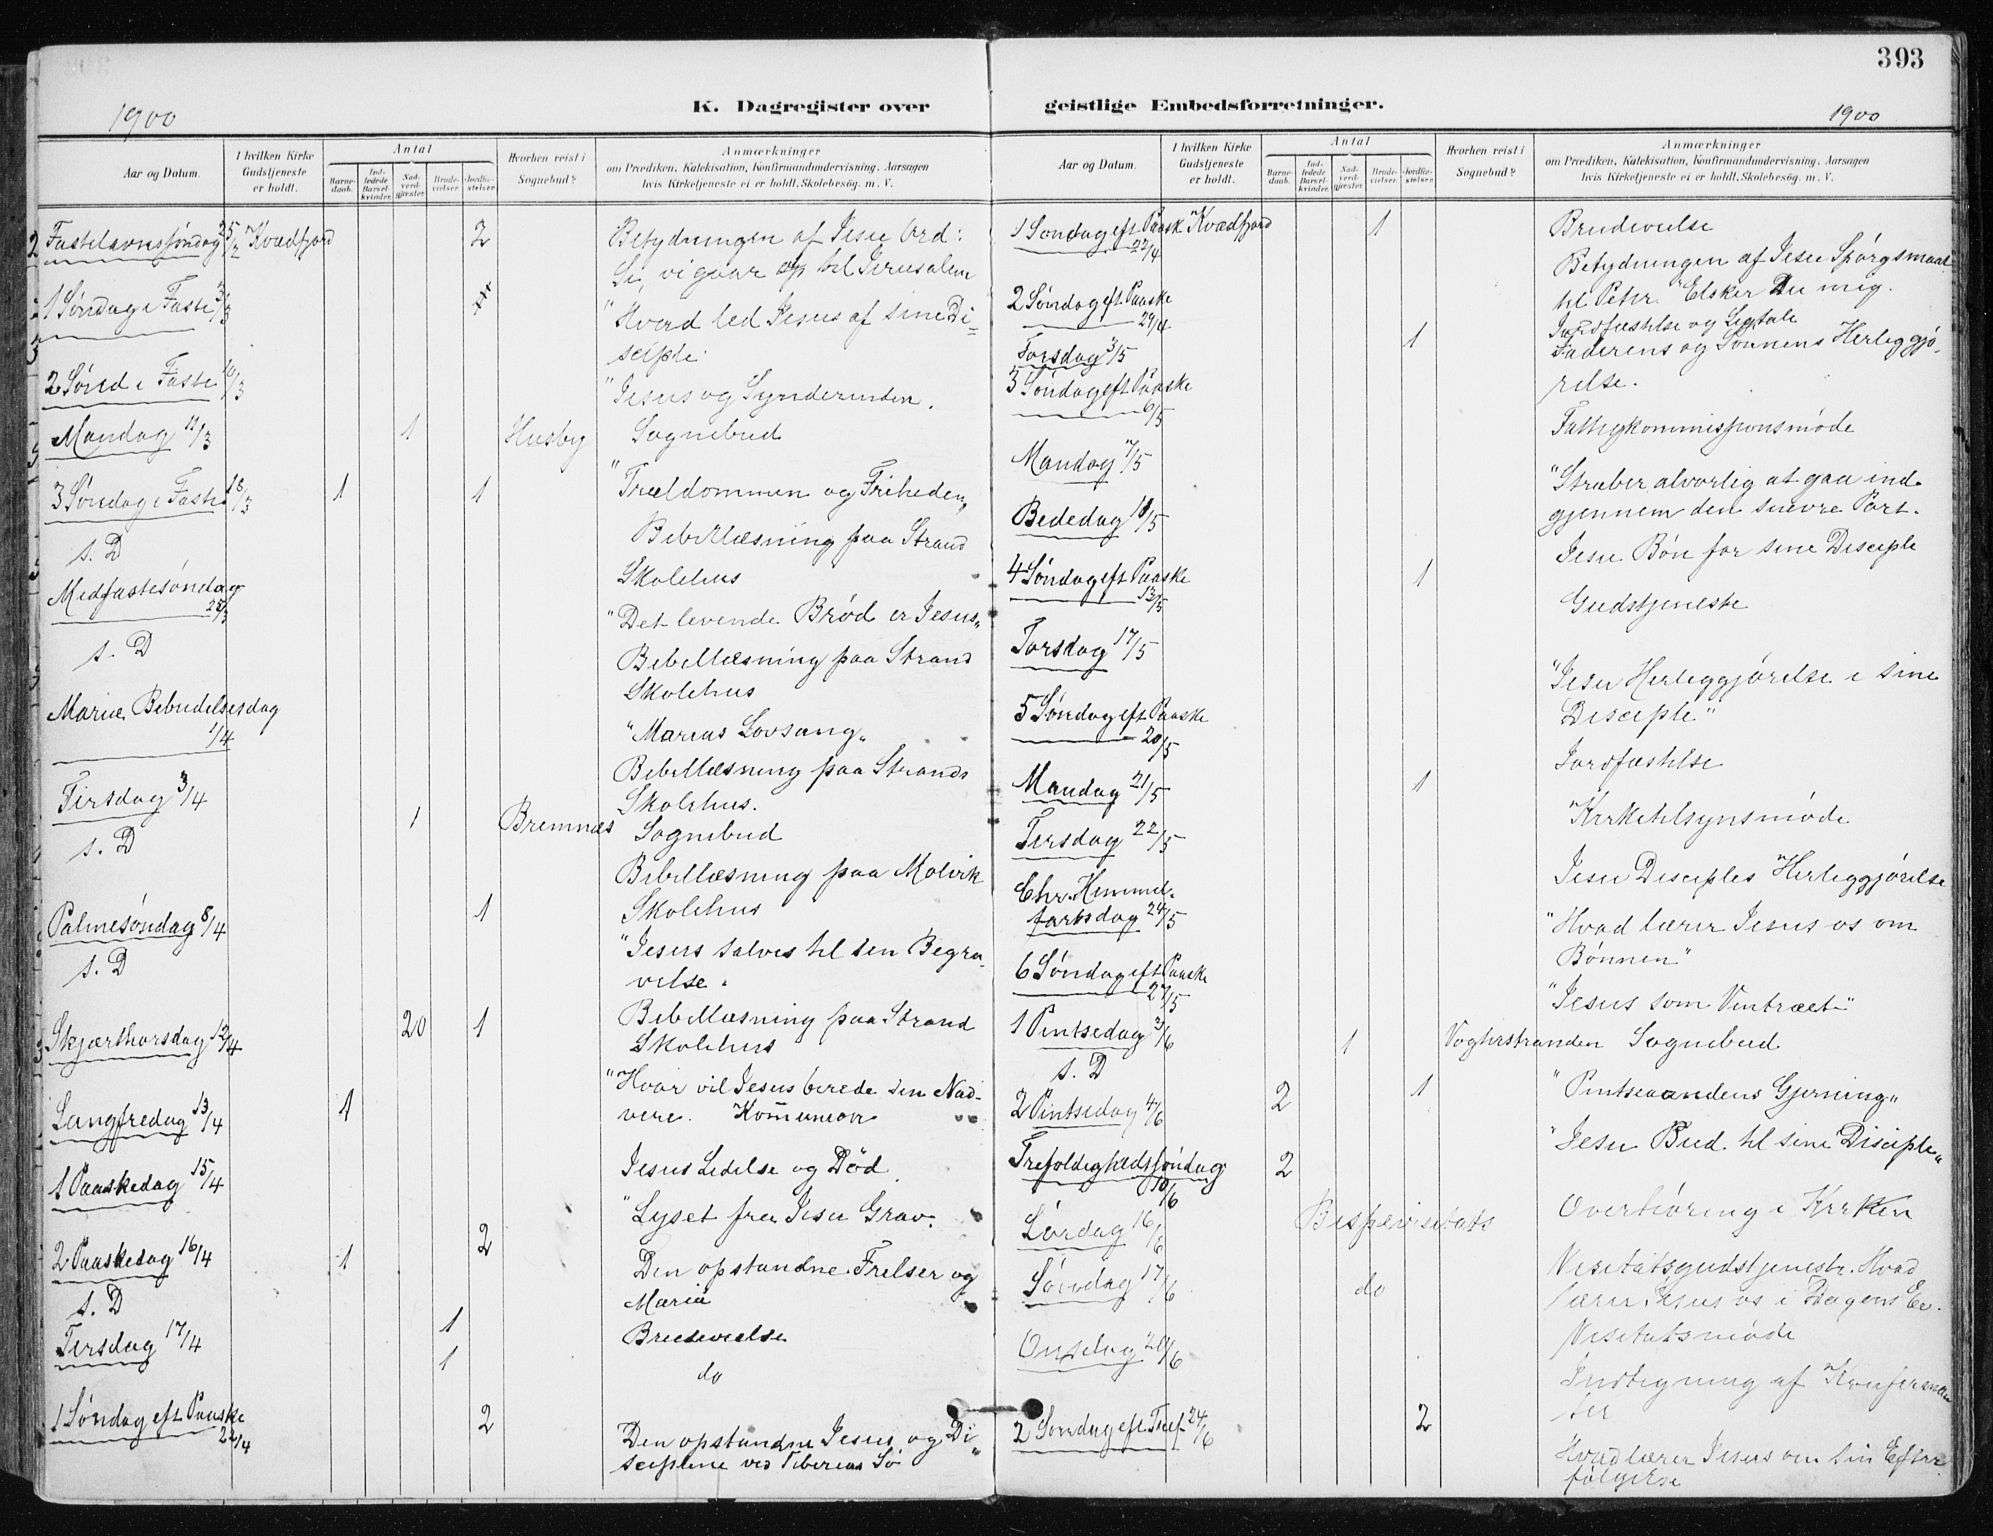 393
1900
K. Dagregister over
geistlige Embedsforretninger.
1900
Aar og Datum.
I hvilken Kirke Gudstjeneste er holdt.
Antal
Barne-daab.
Ind-ledede Barsel-kvinder.
Nad-verd-gjæster.
Brude-vielser.
Jordfæ-stelser.
Hvorhen reist i Sognebud?
Anmærkninger
om Prædiken, Katekisation, Konfirmandundervisning, Aarsagen
hvis Kirketjeneste ei er holdt, Skolebesøg. m. V.
Fastelavnssøndag 25/2 Kvædfjord 2 Betydningen af Jesu Ord:
Se, vi gaar op til Jerusalem
1 Søndag i Faste 3/3 "Hvad led Jesus af sine Di-
sciple.
2 Sønd i Faste 10/3 "Jesus og Synderinden.
Mandag 12/3 1 Husby Sognebud
3 Søndag i Faste 18/3 1 1 "Trældommen og Friheden"
s. D Bibellæsning paa Strand
Skolehus
Midfastesøndag 25/3 "Det levende Brød er Jesus"
s. D Bibellæsning paa Strand
Skolehus
Mariæ Bebudelsesdag 1/4 "Marias Lovsang"
Bibellæsning paa Strands
Skolehus.
Tirsdag 3/4 1 Bremnæs Sognebud
s. D Bibellæsning paa Molvik
Skolehus
Palmesøndag 8/4 1 "Jesus salves til sin Begra-
velse.
s. D Bibellæsning paa Strand
Skolehus
Skjærthorsdag 12/4 20 1 "Hvor vil Jesus berede sin Nad-
vere. Kommunion
Langfredag 13/4 1 Jesus Lidelse og Død
1 Paaskedag 15/4 "Lyset fra Jesu Grav.
2 Paaskedag 16/4 1 2 Den opstandne Frelser og
Maria
s. D 1 Brudevielse
Tirsdag 17/4 1 do
1 Søndag eft Paaske 22/4 2 Den opstandne Jesus og Di
sciplene ved Tiberias Sø
Aar og Datum.
I hvilken Kirke Gudstjeneste er holdt.
Antal
Barne-daab.
Ind-ledede Barsel-kvinder.
Nad-verd-gjæster.
Brude-vielser.
Jordfæ-stelser.
Hvorhen reist i Sognebud?
Anmærkninger
om Prædiken, Katekisation, Konfirmandundervisning, Aarsagen
hvis Kirketjeneste ei er holdt, Skolebesøg. m. V.
1 Søndag eft Paask Kvædfjord 22/4 1 Brudevielse
Betydningen af Jesu Spørgsmaal
til Petr. "Elsker Du mig.
2 Søndag eft Paaske 29/4
Jordfæstelse og Ligtale
Torsdag 3/5 1 Faderens og Sønnens Herliggjø-
relse.
3 Søndag eft Paaske 6/5
Mandag 7/5 Fattigkommissionsmøde
Bededag 18/5 "Stræber alvorlig at gaa ind
gjennem den snevre Port.
4 Søndag eft Paaske 13/5 1 Jesu Bøn for sine Disciple
Torsdag 17/5 Gudstjeneste
5 Søndag eft Paaske 20/5 "Jesu Herliggjørelse i sine
Disciple"
Mandag 21/5 1 Jordfæstelse
Tirsdag 22/5 Kirketilsynsmøde
Chr. Himmel-
fartsdag 24/5 Jesu Disciples Herliggjørelse
6 Søndag eft Paaske 27/5 "Hvad lærer Jesus os om
Bønnen"
1 Pintsedag 3/6 "Jesus som Vintræet"
s. D 1 Sognebud
2 Pintsedag 4/6 2 1 "Pintseaandens Gjerning"
Trefoldighedssøndag 10/6 2 "Jesu Bud til sine Disciple"
Lørdag 16/6 Bispevisitats Overhøring i Kirken
Søndag 17/6 do Visitatsgudstjeneste. Hvad
lærer Jesus os i Dagens Ev.
Onsdag 20/6 Visitatsmøde
Indtegning af Konfirman
der
2 Søndag eft Tref. 24/6 2 Hvad lærer Jesus om sin Efter
følgelse